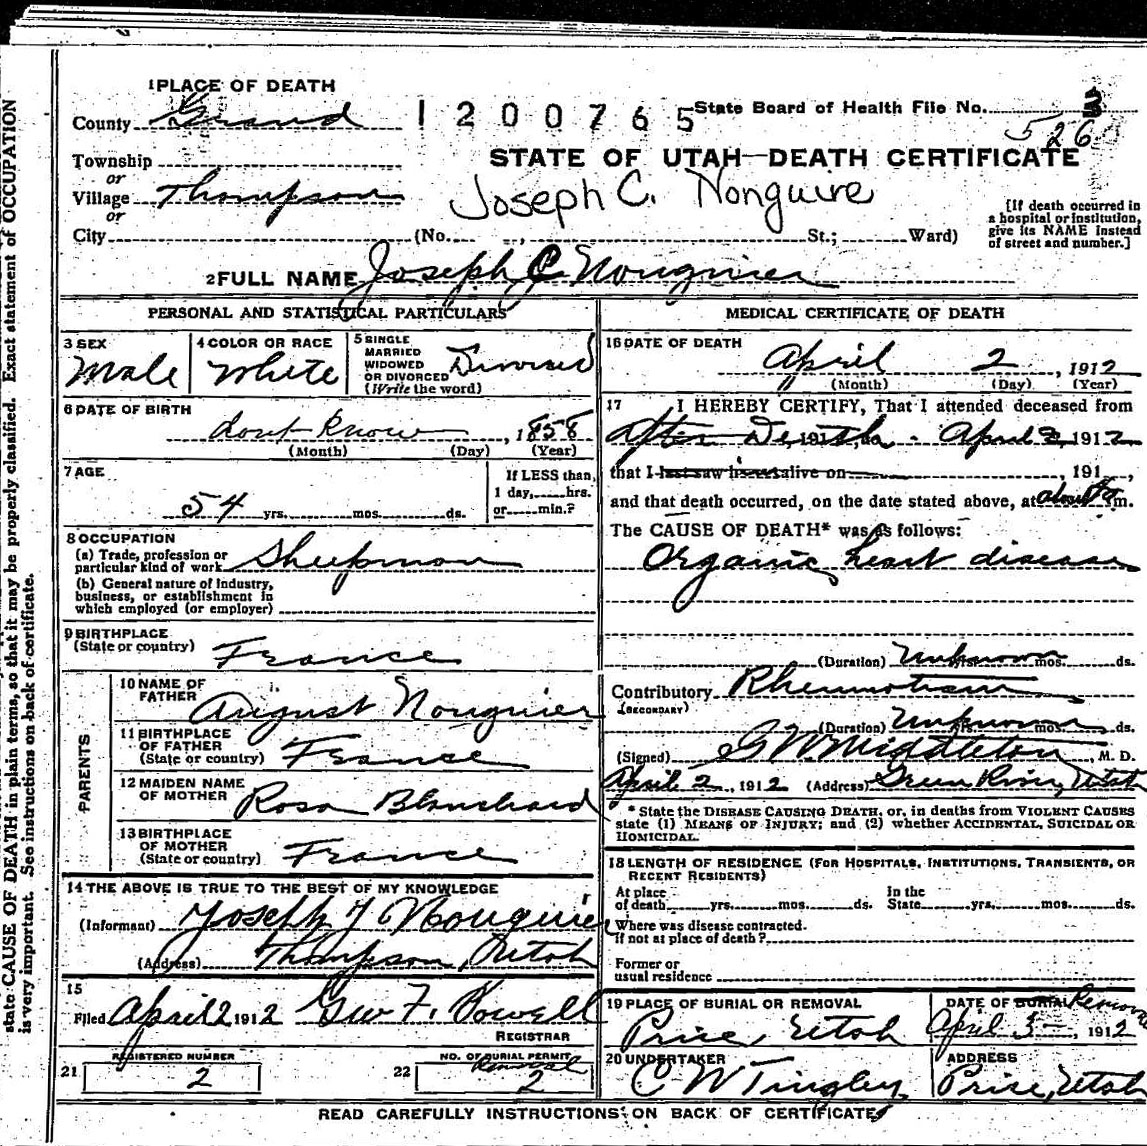 1 PLACE OF DEATH
County Grand
1200765
State Board of Health File No. 3
526
Township
or
Village Thompson
or
STATE OF UTAH—DEATH CERTIFICATE
Joseph C. Nonguire
[If death occurred in
a hospital or institution,
give its NAME instead
of street and number.]
City (No. , St.; Ward)
2 FULL NAME Joseph C Nouguier
PERSONAL AND STATISTICAL PARTICULARS
3 SEX
Male
4 COLOR OR RACE
White
5 SINGLE
MARRIED
WIDOWED
OR DIVORCED
(Write the word)
Divorced
6 DATE OF BIRTH
dont know, 1858
(Month) (Day) (Year)
7 AGE
54 yrs. mos. ds.
If LESS than
1 day, hrs.
or min.?
8 OCCUPATION
(a) Trade, profession or
particular kind of work Sheepman
(b) General nature of industry,
business, or establishment in
which employed (or employer)
9 BIRTHPLACE
(State or country)
France
PARENTS
10 NAME OF
FATHER
August Nouguier
11 BIRTHPLACE
OF FATHER
(State or country) France
12 MAIDEN NAME
OF MOTHER Rosa Blanchard
13 BIRTHPLACE
OF MOTHER
(State or country) France
14 THE ABOVE IS TRUE TO THE BEST OF MY KNOWLEDGE
(Informant) Joseph F Nouguier
(Address) Thompson, Utah
15
Filed April 2 1912 Geo F. Powell
REGISTRAR
21 REGISTERED NUMBER
2
22 NO. OF BURIAL PERMIT
Removal
2
MEDICAL CERTIFICATE OF DEATH
16 DATE OF DEATH
April 2, 1912
(Month) (Day) (Year)
17 I HEREBY CERTIFY, That I attended deceased from
After Death, 191 , April 2, 1912
that I last saw h alive on , 191 ,
and that death occurred, on the date stated above, at about m.
The CAUSE OF DEATH* was as follows:
Organic heart disease
(Duration) Unknown mos. ds.
Contributory Rheumatism
(SECONDARY)
(Duration) Unknown yrs. mos. ds.
(Signed) G W Middleton, M. D.
April 2, 1912 (Address) Green River, Utah
* State the DISEASE CAUSING DEATH, or, in deaths from VIOLENT CAUSES
state (1) MEANS OF INJURY; and (2) whether ACCIDENTAL, SUICIDAL OR
HOMICIDAL.
18 LENGTH OF RESIDENCE (FOR HOSPITALS, INSTITUTIONS, TRANSIENTS, OR
RECENT RESIDENTS)
At place
of death yrs. mos. ds.
In the
State yrs. mos. ds.
Where was disease contracted.
If not at place of death?
Former or
usual residence
19 PLACE OF BURIAL OR REMOVAL
Price Utah
DATE OF BURIAL Removal
April 3, 1912
20 UNDERTAKER
C W Tingley
ADDRESS
Price, Utah
READ CAREFULLY INSTRUCTIONS ON BACK OF CERTIFICATE
state CAUSE OF DEATH in plain terms, so that it may be properly classified. Exact statement of OCCUPATION
is very important. See instructions on back of certificate.